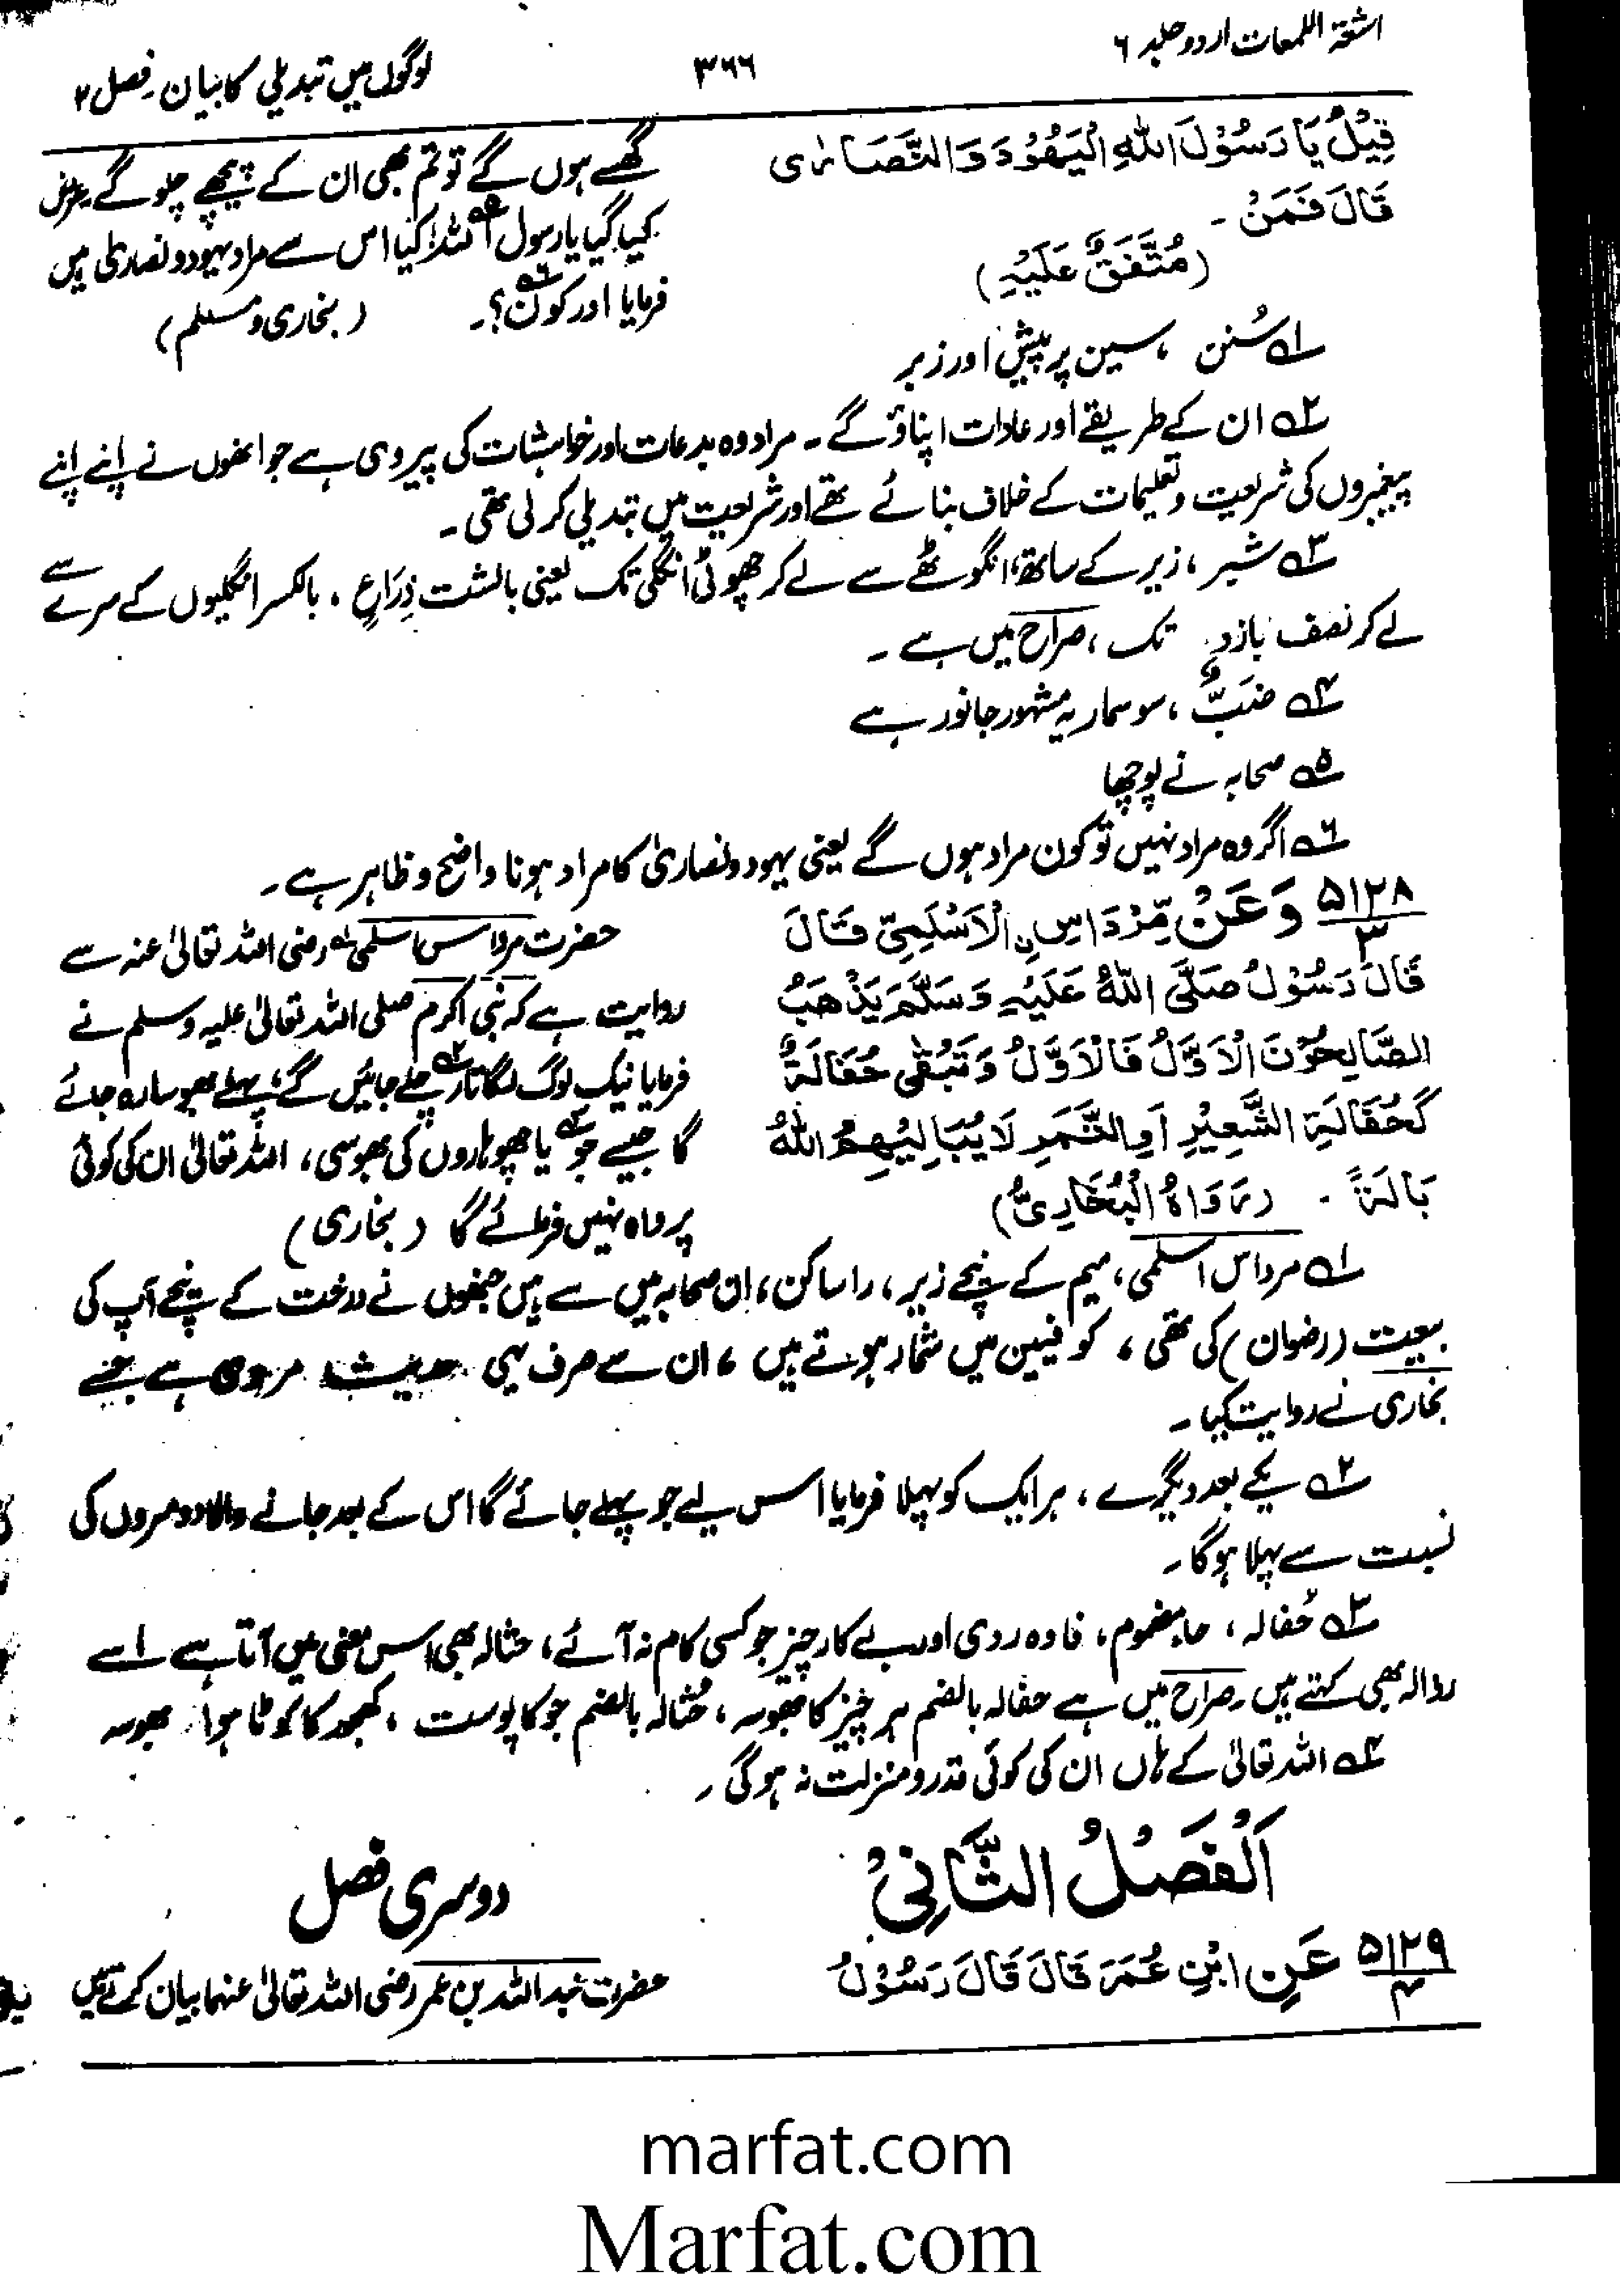 اشعۃ اللمعات اردو جلد ۶
۳۶۶
لوگوں میں تبدیلی کا بیان فصل ۲
قِيْلَ يَا رَسُوْلَ اللهِ الْيَهُوْدَ وَالنَّصَارٰى
قَالَ فَمَنْ ۔
(مُتَّفَقٌ عَلَيْهِ)
گھسے ہوں گے تو تم بھی ان کے پیچھے چلو گے عرض
کیا گیا یا رسول اللہ ۵ کیا اس سے مراد یہود و نصاریٰ ہیں
فرمایا اور کون ۶؟۔ (بخاری و مسلم)
۱ سُنن ، سین پر پیش اور زبر
۲ ان کے طریقے اور عادات اپناؤ گے ۔ مراد وہ بدعات اور خواہشات کی پیروی ہے جو انھوں نے اپنے اپنے
پیغمبروں کی شریعت و تعلیمات کے خلاف بنائے تھے اور شریعت میں تبدیلی کر لی تھی ۔
۳ شبر ، زیر کے ساتھ ، انگوٹھے سے لے کر چھوٹی انگلی تک یعنی بالشت ذِرَاع ، بالکسر انگلیوں کے سرے سے
لے کر نصف بازو تک ، صراح میں ہے ۔
۴ ضَبٌّ ، سوسمار یہ مشہور جانور ہے
۵ صحابہ نے پوچھا
۶ اگر وہ مراد نہیں تو کون مراد ہوں گے یعنی یہود و نصاریٰ کا مراد ہونا واضح و ظاہر ہے ۔
۵۱۲۸/۳ وَعَنْ مِّرْدَاسِ نِ الْاَسْلَمِيِّ قَالَ
قَالَ رَسُوْلُ صَلَّى اللهُ عَلَيْهِ وَسَلَّمَ يَذْهَبُ
الصَّالِحُوْنَ الْاَوَّلُ فَالْاَوَّلُ وَتَبْقٰى حُفَالَةٌ
كَحُفَالَةِ الشَّعِيْرِ اَوِ التَّمَرِ لَا يُبَالِيْهِمُ اللهُ
بَالَةً ۔ (رَوَاهُ الْبُخَارِيُّ)
حضرت مرداس اسلمی ۱ رضی اللہ تعالیٰ عنہ سے
روایت ہے کہ نبی اکرم صلی اللہ تعالیٰ علیہ وسلم نے
فرمایا نیک لوگ لگاتار ۲ چلے جائیں گے ، پہلے بھوسا رہ جائے
گا جیسے جو ۳ یا چھوہاروں کی بھوسی ، اللہ تعالیٰ ان کی کوئی
پرواہ نہیں فرمائے گا (بخاری)
۱ مرداس اسلمی ، میم کے نیچے زیر ، را ساکن ، ان صحابہ میں سے ہیں جنھوں نے درخت کے نیچے آپ کی
بیعت (رضوان) کی تھی ، کوفیین میں شمار ہوتے ہیں ، ان سے صرف یہی حدیث مروی ہے جسے
بخاری نے روایت کیا ۔
۲ یکے بعد دیگرے ، ہر ایک کو پہلا فرمایا اس لیے جو پہلے جائے گا اس کے بعد جانے والا دوسروں کی
نسبت سے پہلا ہوگا ۔
۳ حُفالہ ، حاء مضموم ، فاوہ ردی اور بے کار چیز جو کسی کام نہ آئے ، حثالہ بھی اس معنی میں آتا ہے اسے
روالہ بھی کہتے ہیں ۔ صراح میں ہے حفالہ بالضم ہر چیز کا بھوسہ ، حُثالہ بالضم جو کا پوست ، کھجور کا کوٹا ہوا بھوسہ
۴ اللہ تعالیٰ کے ہاں ان کی کوئی قدر و منزلت نہ ہوگی ۔
اَلْفَصْلُ الثَّانِيْ
دوسری فصل
۵۱۲۹/۴ عَنِ ابْنِ عُمَرَ قَالَ قَالَ رَسُوْلُ
حضرت عبداللہ بن عمر رضی اللہ تعالیٰ عنہما بیان کرتے ہیں
marfat.com
Marfat.com